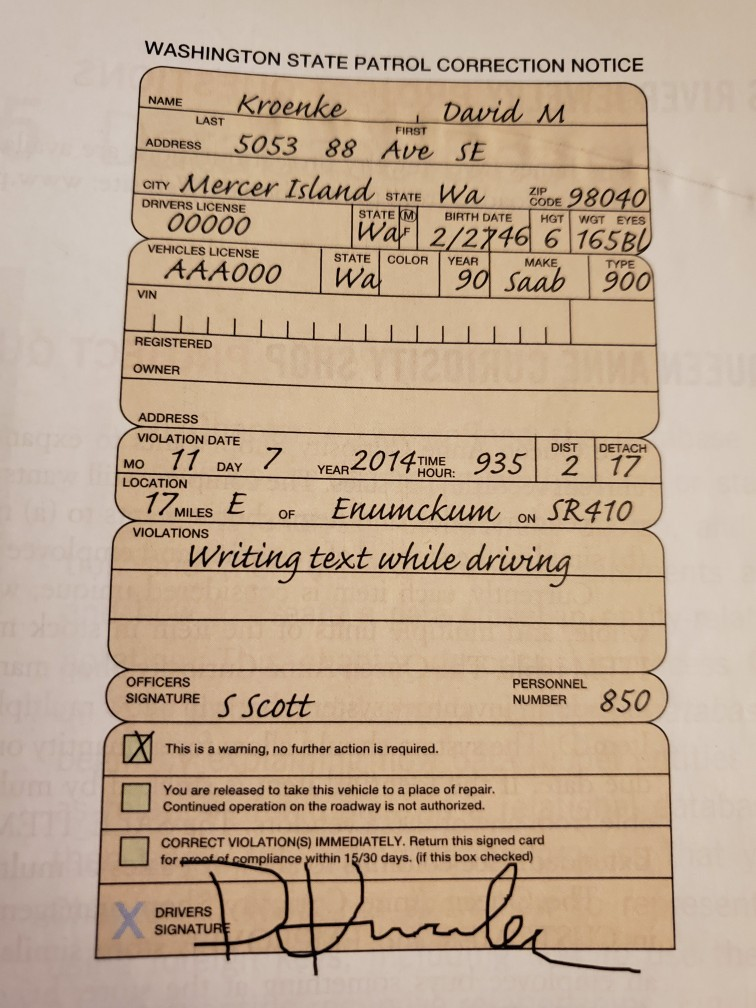 WASHINGTON STATE PATROL CORRECTION NOTICE
NAME Kroenke , David M
LAST FIRST
ADDRESS 5053 88 Ave SE
CITY Mercer Island STATE Wa ZIP CODE 98040
DRIVERS LICENSE STATE M F BIRTH DATE HGT WGT EYES
00000 Wa 2/2746 6 165 Bl
VEHICLES LICENSE STATE COLOR YEAR MAKE TYPE
AAA000 Wa 90 Saab 900
VIN
REGISTERED
OWNER
ADDRESS
VIOLATION DATE DIST DETACH
MO 11 DAY 7 YEAR 2014 TIME HOUR: 935 2 17
LOCATION
17 MILES E OF Enumckum ON SR410
VIOLATIONS
Writing text while driving
OFFICERS SIGNATURE S Scott PERSONNEL NUMBER 850
X This is a warning, no further action is required.
You are released to take this vehicle to a place of repair.
Continued operation on the roadway is not authorized.
CORRECT VIOLATION(S) IMMEDIATELY. Return this signed card
for proof of compliance within 15/30 days. (if this box checked)
X DRIVERS
SIGNATURE